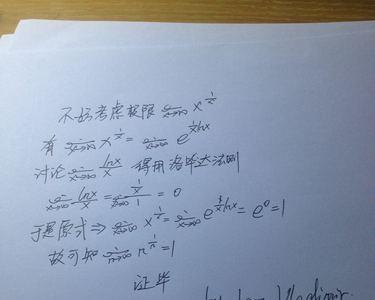 不妨考虑极限 lim x→∞ x^(1/x)
有 lim x→∞ x^(1/x) = lim x→∞ e^(1/x lnx)
讨论 lim x→∞ lnx/x 得用洛毕达法则
lim x→∞ lnx/x = lim x→∞ (1/x)/1 = 0
于是原式 ⇒ lim x→∞ x^(1/x) = lim x→∞ e^(1/x lnx) = e^0 = 1
故可知 lim n→∞ n^(1/n) = 1
证毕
Vladimir.